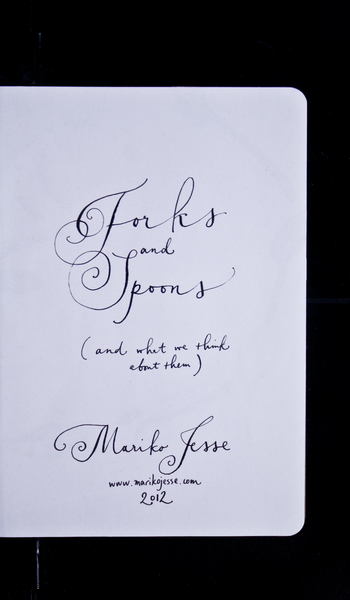 Forks
and
Spoons
(and what we think
about them)
Mariko Jesse
www.marikojesse.com
2012